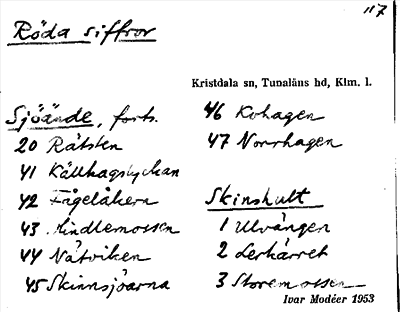 117
Röda siffror
Kristdala sn, Tunaläns hd, Klm. l.
Sjöände, forts.
20 Råtsten
41 Källhagslyckan
42 Fågelåkern
43 Hindlemossen
44 Nåtviken
45 Skinnsjöarna
46 Kohagen
47 Norrhagen
Skinshult
1 Ulvängen
2 Lerkärret
3 Storemossen
Ivar Modéer 1953